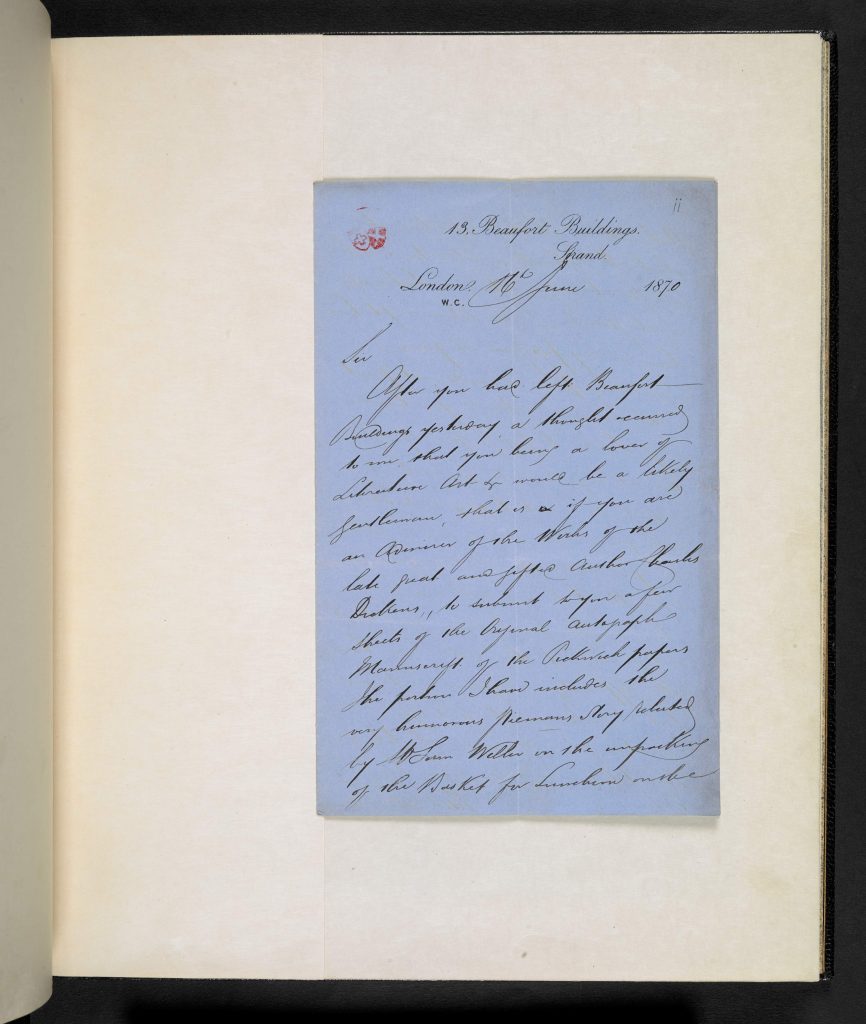 ii
13, Beaufort Buildings.
Strand.
London, 16th June 1870
W.C.
Sir
After you had left Beaufort
Buildings yesterday, a thought occurred
to me, that you being a lover of
Literature Art & would be a likely
gentleman, that is if you are
an Admirer of the Works of the
late great and gifted Author Charles
Dickens, to submit to you a few
sheets of the Original Autograph
Manuscript of the Pickwick papers
the portion I have includes the
very humorous Piemans Story related
by Mr Sam Weller on the unpacking
of the Basket for Luncheon on the